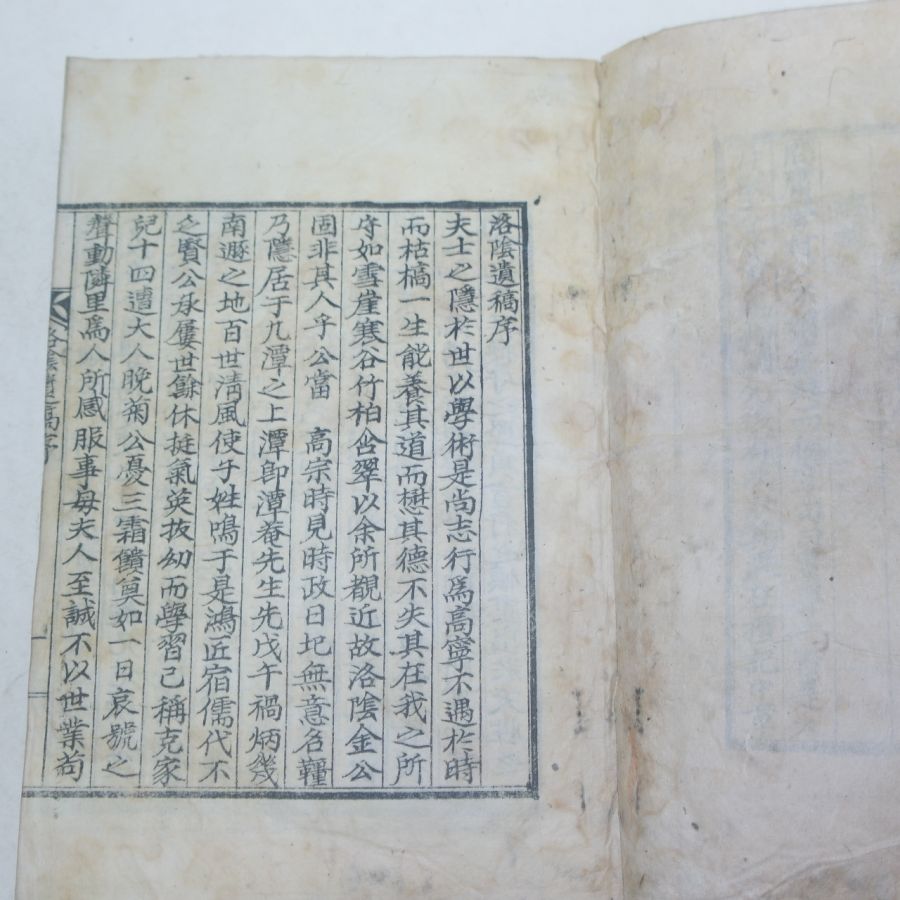 洛陰遺稿序
夫士之隱於世以學術是尚志行爲高寧不遇於時
而枯槁一生能養其道而懋其德不失其在我之所
守如雪崖寒谷竹柏含翠以余所觀近故洛陰金公
固非其人乎公當 高宗時見時政日圮無意名韁
乃隱居于九潭之上潭卽潭菴先生先戊午禍炳幾
南遯之地百世淸風使于姓鳴于是鴻匠宿儒代不
之賢公承屢世餘休挺氣英拔幼而學習已稱克家
兒十四遭大人晩菊公憂三霜饋奠如一日哀號之
聲動隣里爲人所感服事母夫人至誠不以世業尙
洛陰遺稿序